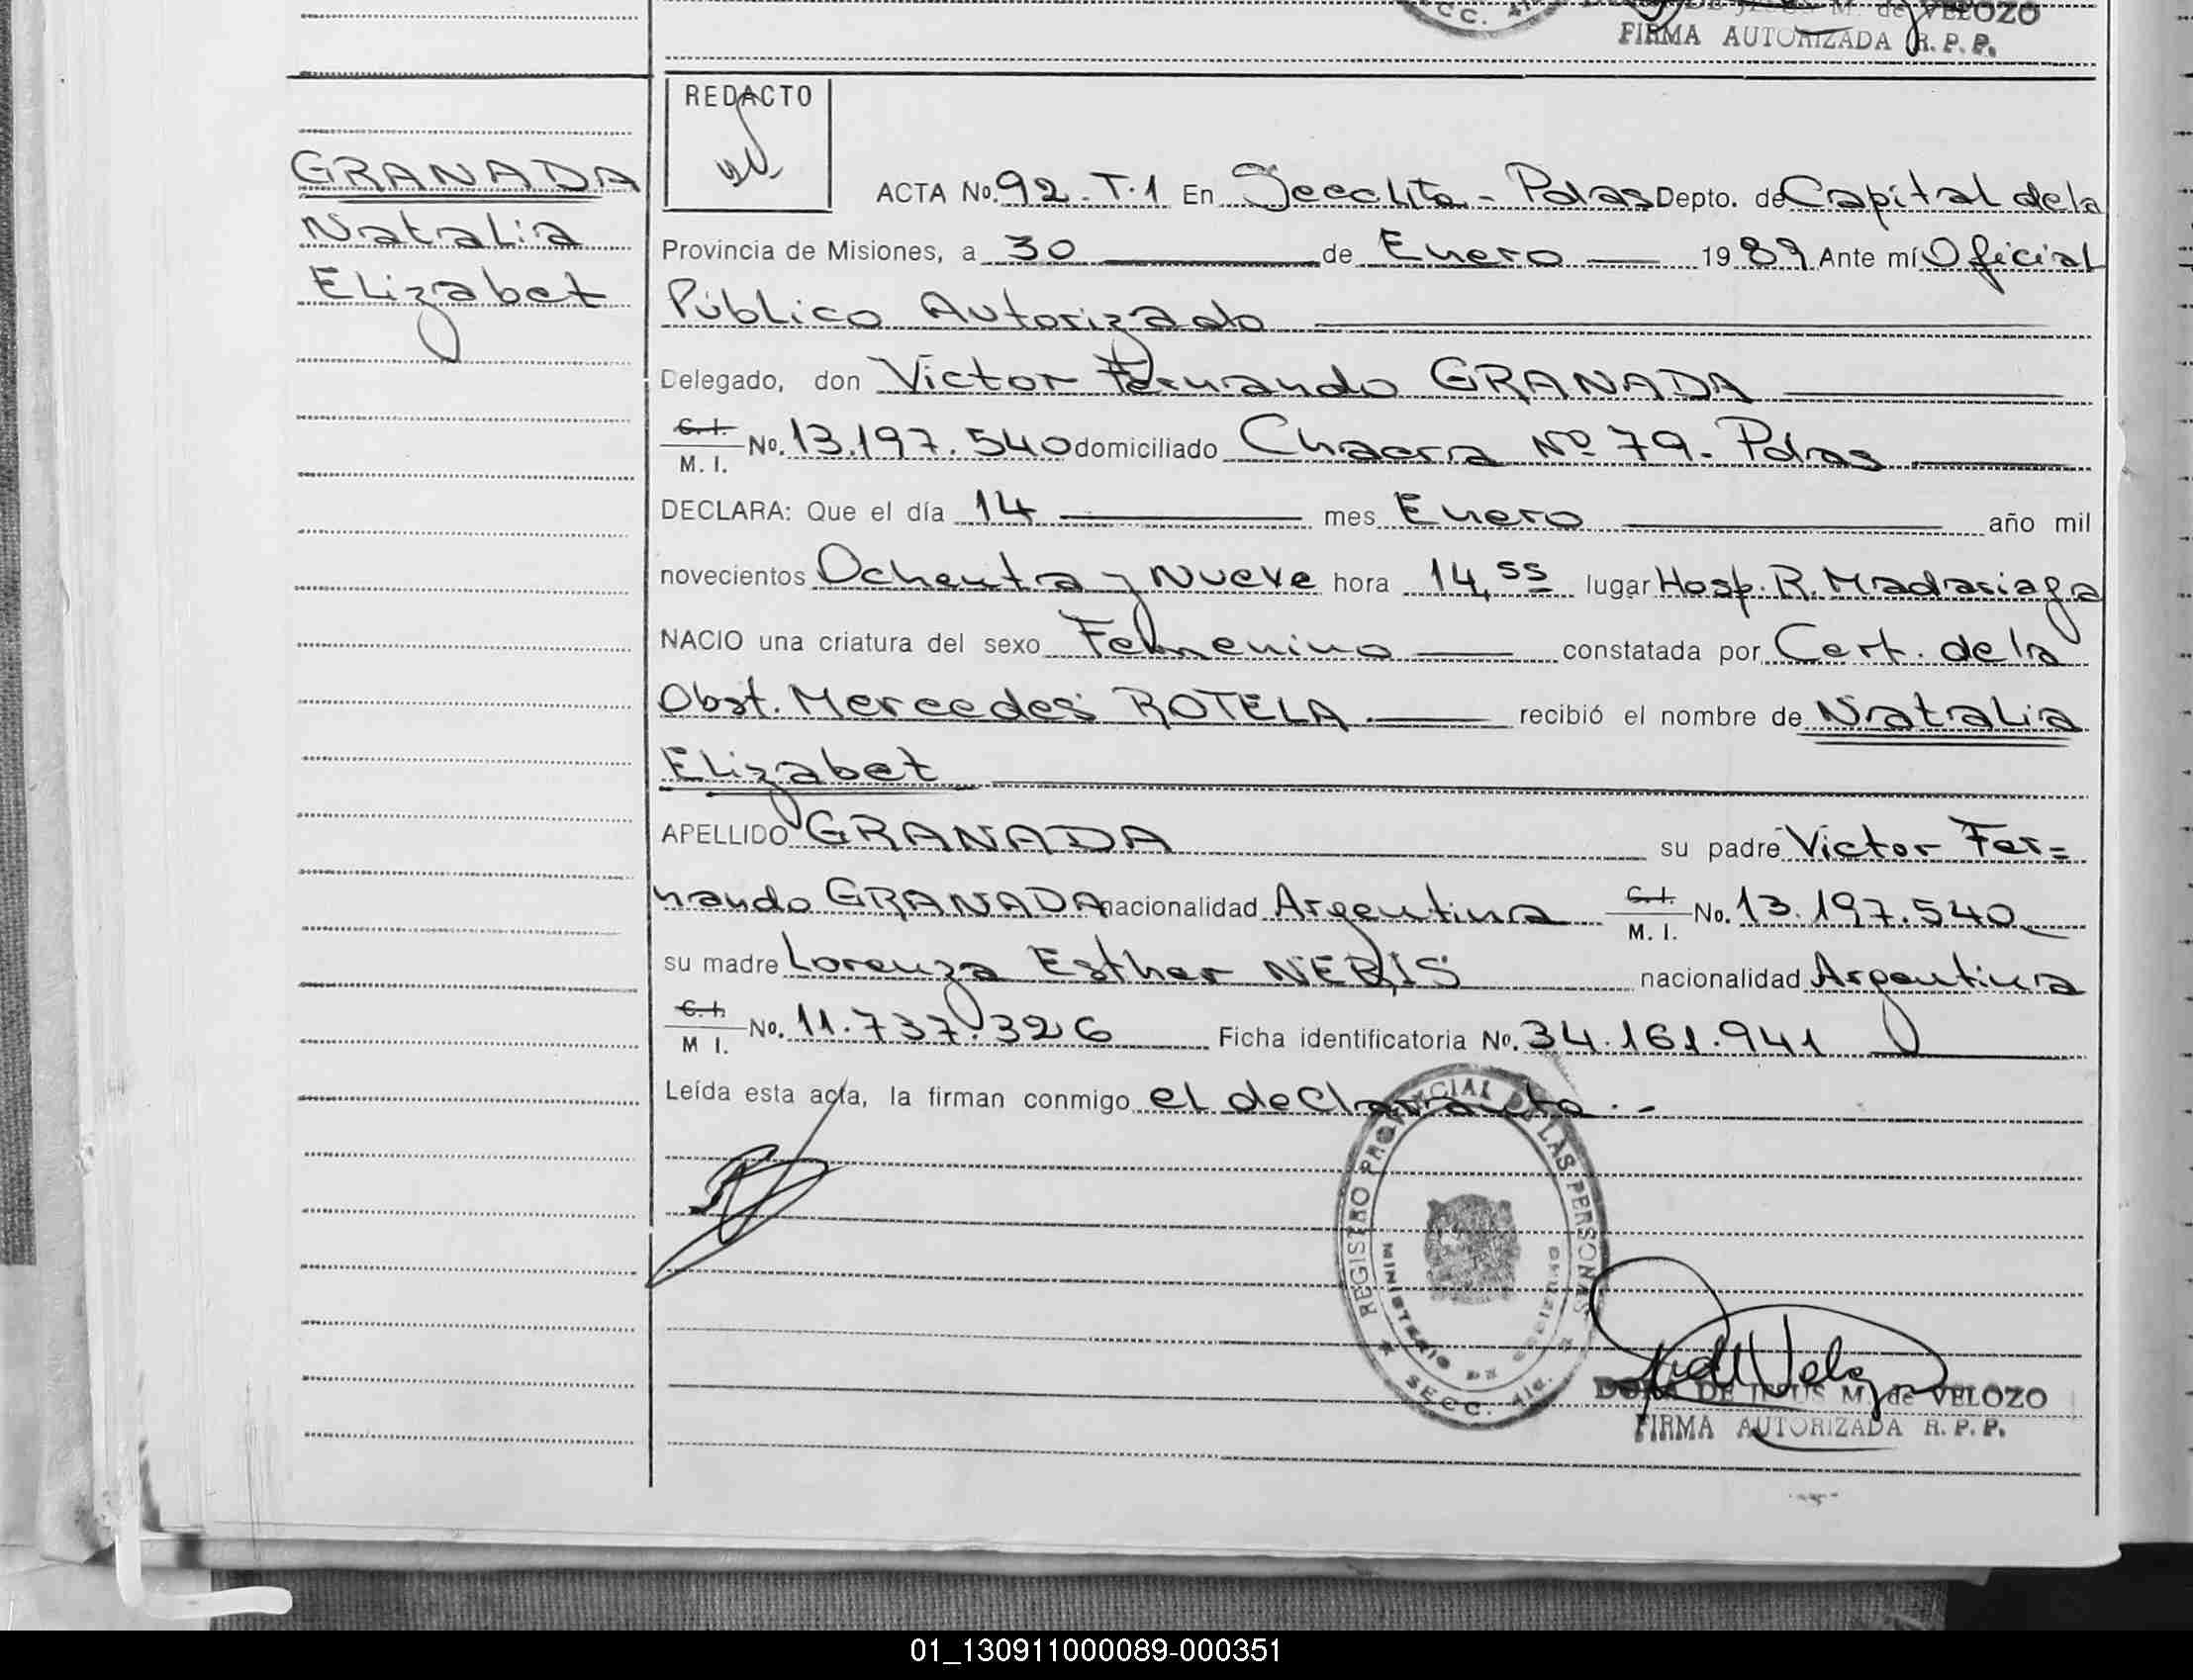 FIRMA AUTORIZADA R. P. P.
REDACTO
GRANADA
Natalia
Elizabet
ACTA No. 92 - T.1 En Secc 4ta - Pdas Depto. de Capital de la
Provincia de Misiones, a 30 de Enero 1989 Ante mí Oficial
Público Autorizado
Delegado, don Víctor Fernando GRANADA
C. I.
M. I. No. 13.197.540 domiciliado Chacra Nº 79 - Pdas
DECLARA: Que el día 14 mes Enero año mil
novecientos Ochenta y Nueve hora 14,55 lugar Hosp. R. Madariaga
NACIO una criatura del sexo Femenino constatada por Cert. de la
Obst. Mercedes ROTELA recibió el nombre de Natalia
Elizabet
APELLIDO GRANADA su padre Víctor Fer=
nando GRANADA nacionalidad Argentina C. I.
M. I. No. 13.197.540
su madre Lorenza Esther NERIS nacionalidad Argentina
C. I.
M I. No. 11.737.326 Ficha identificatoria No. 34.161.941
Leída esta acta, la firman conmigo el declarante.-
REGISTRO PROVINCIAL DE LAS PERSONAS
MINISTERIO DE GOBIERNO
SECC. 4ta.
DORA DE JESUS M. de VELOZO
FIRMA AUTORIZADA R. P. P.
01_130911000089-000351